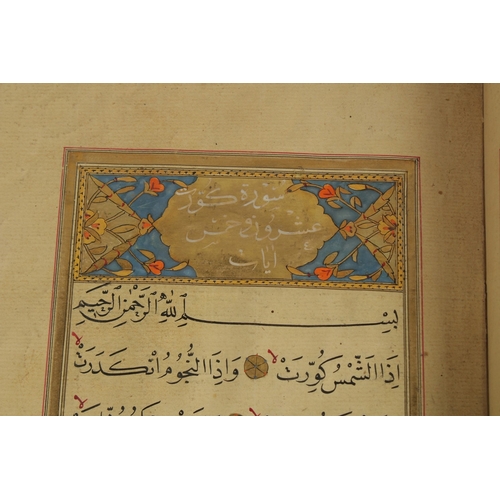 سورة كورت
عشرون و خمس
آيات
بِسْمِ اللّٰهِ الرَّحْمٰنِ الرَّحِيمِ
اِذَا الشَّمْسُ كُوِّرَتْ لا وَاِذَا النُّجُومُ انْكَدَرَتْ لا